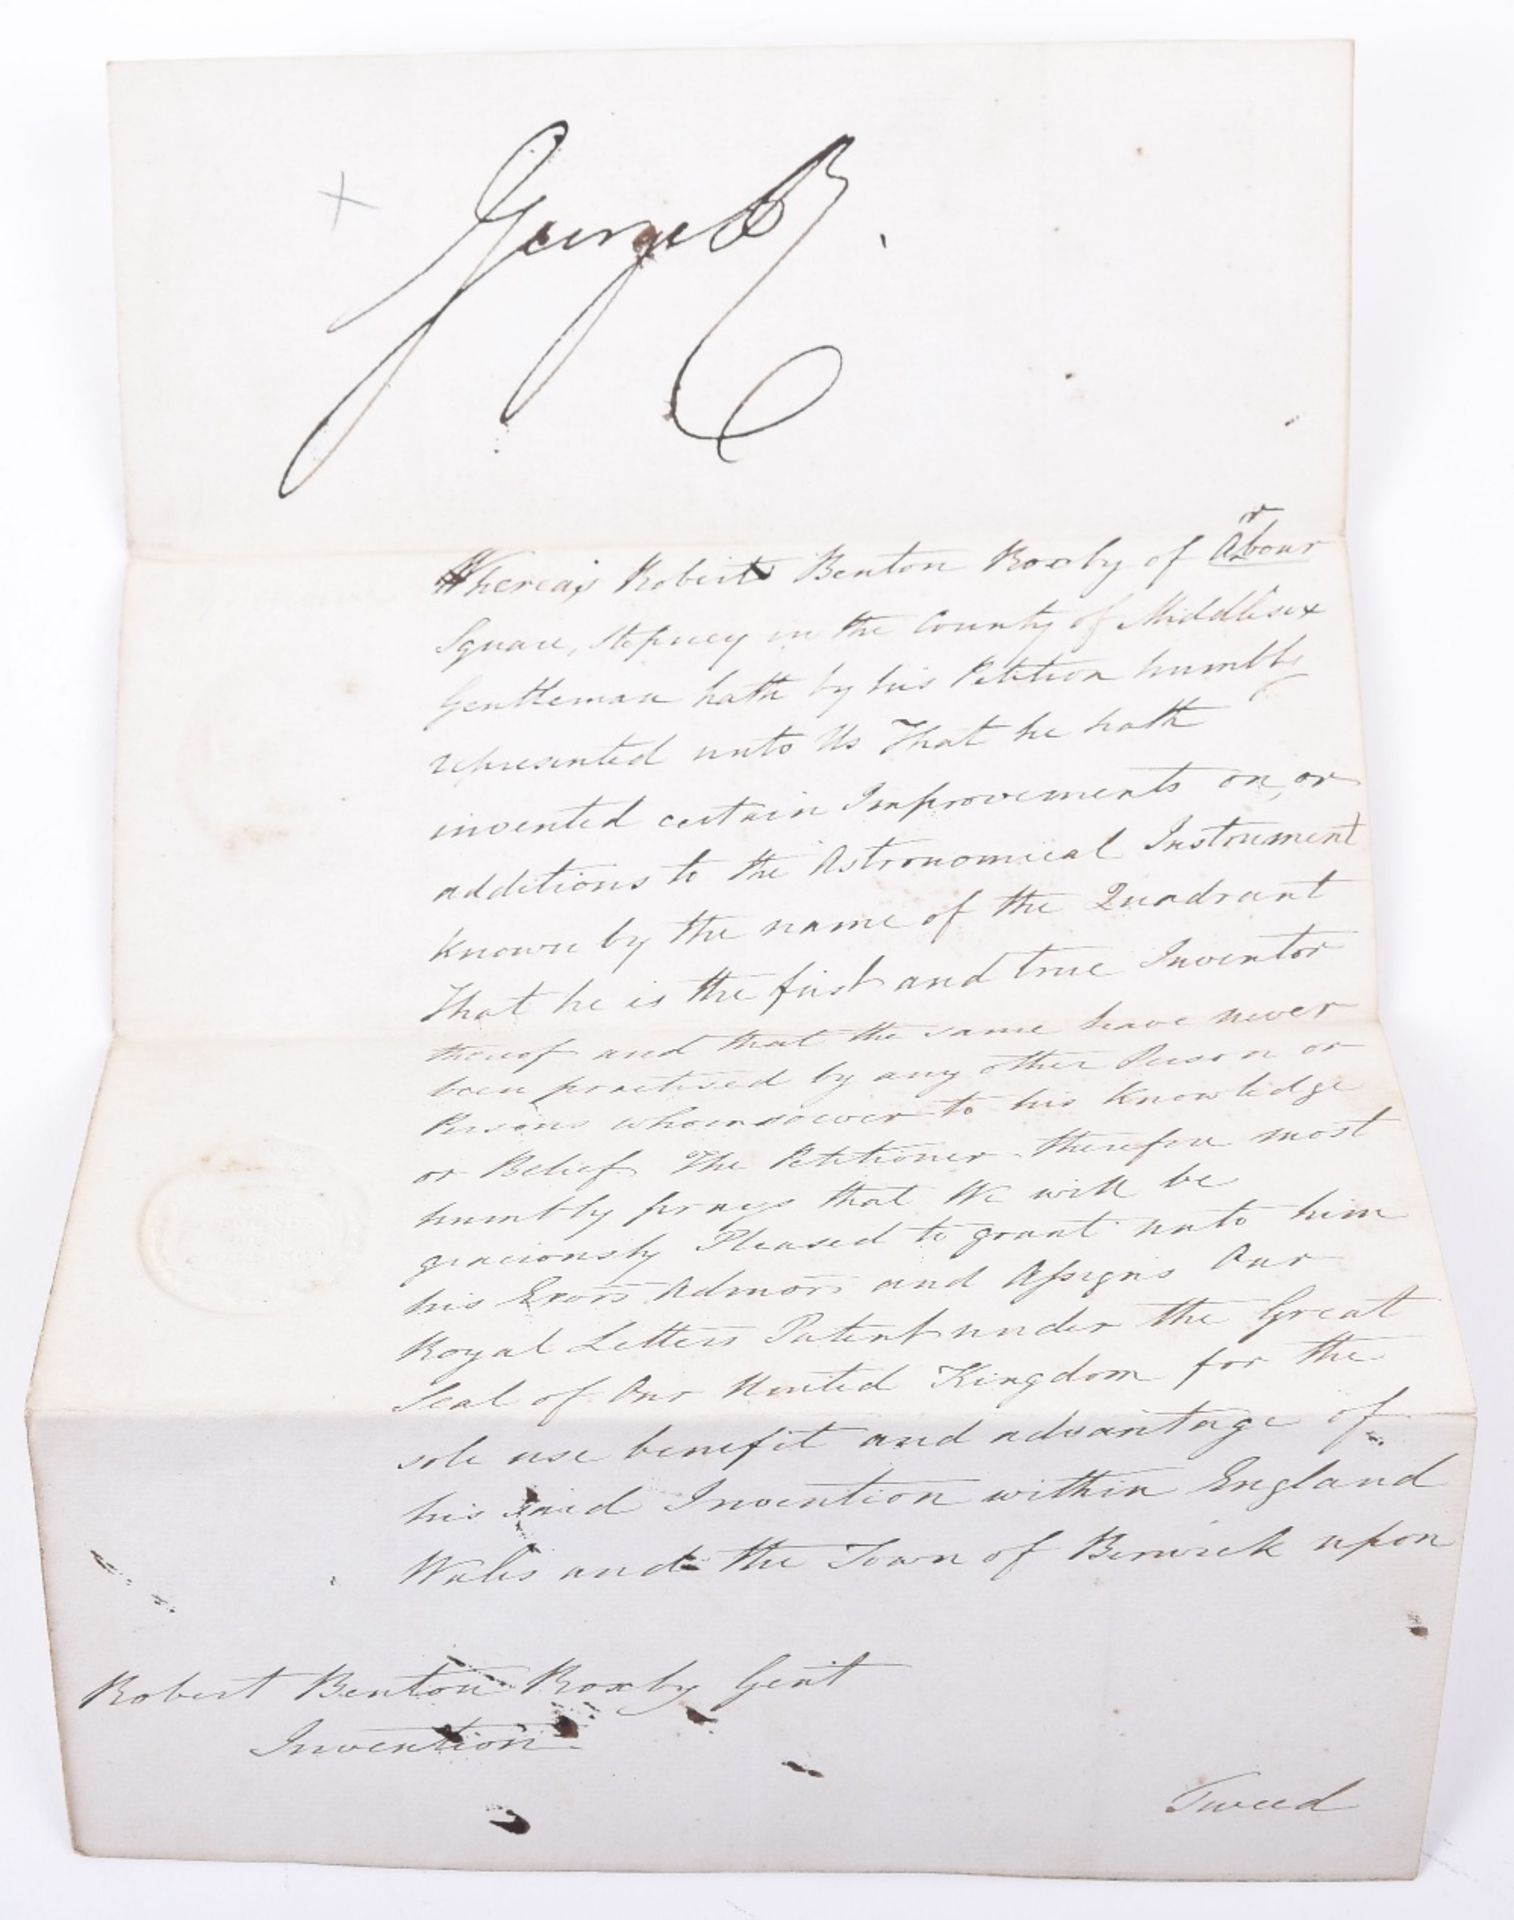 George R.
Whereas Robert Benton Roxby of Arbour
Square, Stepney in the County of Middlesex
Gentleman hath by his Petition humbly
represented unto Us That he hath
invented certain Improvements on, or
additions to the Astronomical Instrument
known by the name of the Quadrant
That he is the first and true Inventor
thereof and that the same have never
been practised by any other Person or
Persons whomsoever to his Knowledge
or Belief The Petitioner therefore most
humbly prays that We will be
graciously Pleased to grant unto him
his Exors Admors and Assigns Our
Royal Letters Patent under the Great
Seal of Our United Kingdom for the
sole use benefit and advantage of
his said Invention within England
Wales and the Town of Berwick upon
Robert Benton Roxby Gent
Invention
Tweed